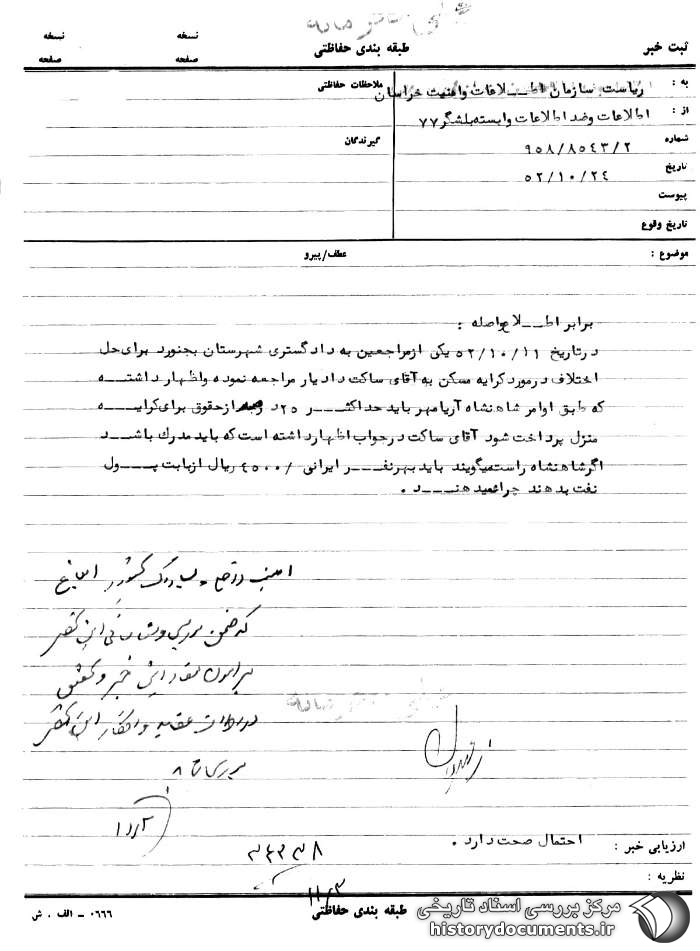 خیلی محرمانه
نسخه نسخه
ثبت خبر طبقه بندی حفاظتی صفحه صفحه
به : ریاست سازمان اطـــلاعات وامنیت خراسان ملاحظات حفاظتی
از : اطلاعات وضد اطلاعات وابسته بلشگر ۷۷
شماره ۹۵۸/۸۵۴۳/۲ گیرندگان
تاریخ ۵۲/۱۰/۲۴
پیوست
تاریخ وقوع
موضوع : عطف/پیرو
برابر اطـــلاع واصله :
درتاریخ ۵۲/۱۰/۱۱ یکی ازمراجعین به دادگستری شهرستان بجنورد برای حل
اختلاف درمورد کرایه مسکن به آقای ساکت دادیار مراجعه نموده واظهار داشتـــه
که طبق اوامر شاهنشاه آریامهر باید حداکثـــر ۲۵ درصد ازحقوق برای کرایـــه
منزل پرداخت شود آقای ساکت درجواب اظهارداشته است که باید مدرک باشـــد
اگرشاهنشاه راست میگویند باید بهرنفـــر ایرانی /۴۵۰۰ ریال ازبابت پـــول
نفت بدهند چرانمیدهنـــد .
که ضمن بررسی
این خبر و
خیلی محرمانه
عقیده و افکار
ارزیابی خبر : احتمال صحت دارد . ۳۴۳۳۸
نظریه :
۱۱/۳
طبقه بندی حفاظتی
۰۶۶۶ - الف . ش
مرکز بررسی اسناد تاریخی
historydocuments.ir